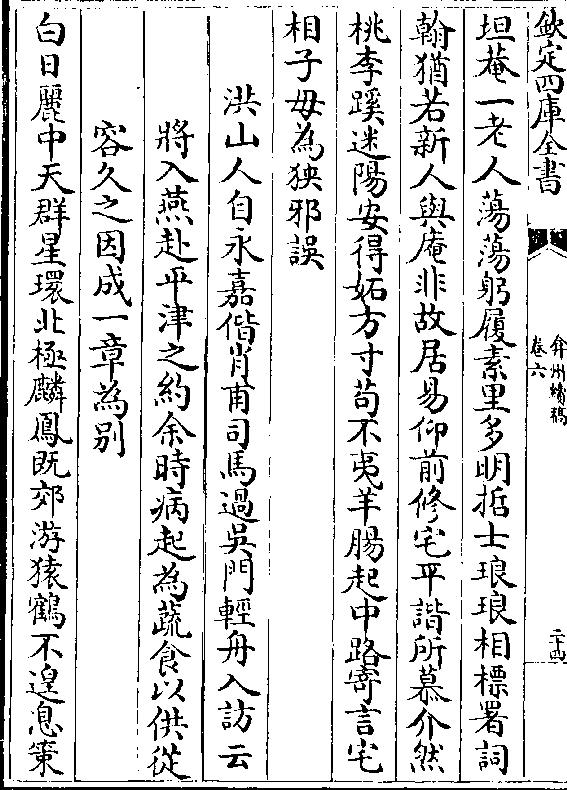 欽定四庫全書
弇州續稿
卷六
二十四
坦菴一老人蕩蕩躬履素里多明哲士琅琅相標署詞
翰猶若新人與庵非故居易仰前修宅平諧所慕介然
桃李蹊迷陽安得妬方寸茍不夷羊腸起中路寄言宅
相子毋為狹邪誤
洪山人自永嘉偕肖甫司馬過吳門輕舟入訪云
將入燕赴平津之約余時病起為蔬食以供從
容久之因成一章為別
白日麗中天群星環北極麟鳳既郊游猿鶴不遑息策